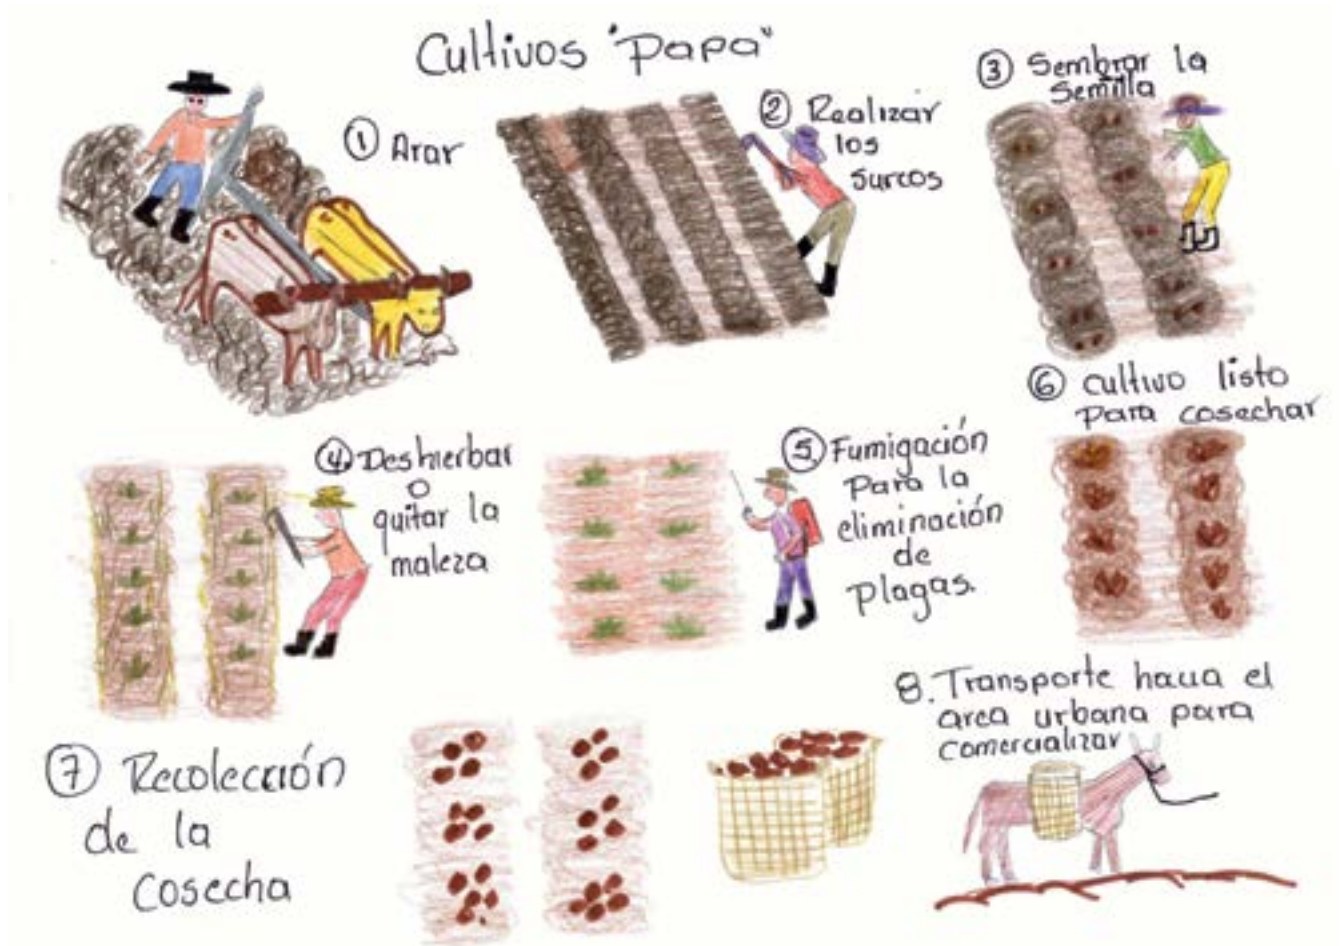 Cultivos "Papa"
① Arar
② Realizar
los
surcos
③ Sembrar la
Semilla
④. Deshierbar
o
quitar la
maleza
⑤. Fumigación
Para la
eliminación
de
Plagas.
⑥ cultivo listo
para cosechar
⑦ Recolección
de la
Cosecha
8. Transporte hacia el
area urbana para
comercializar